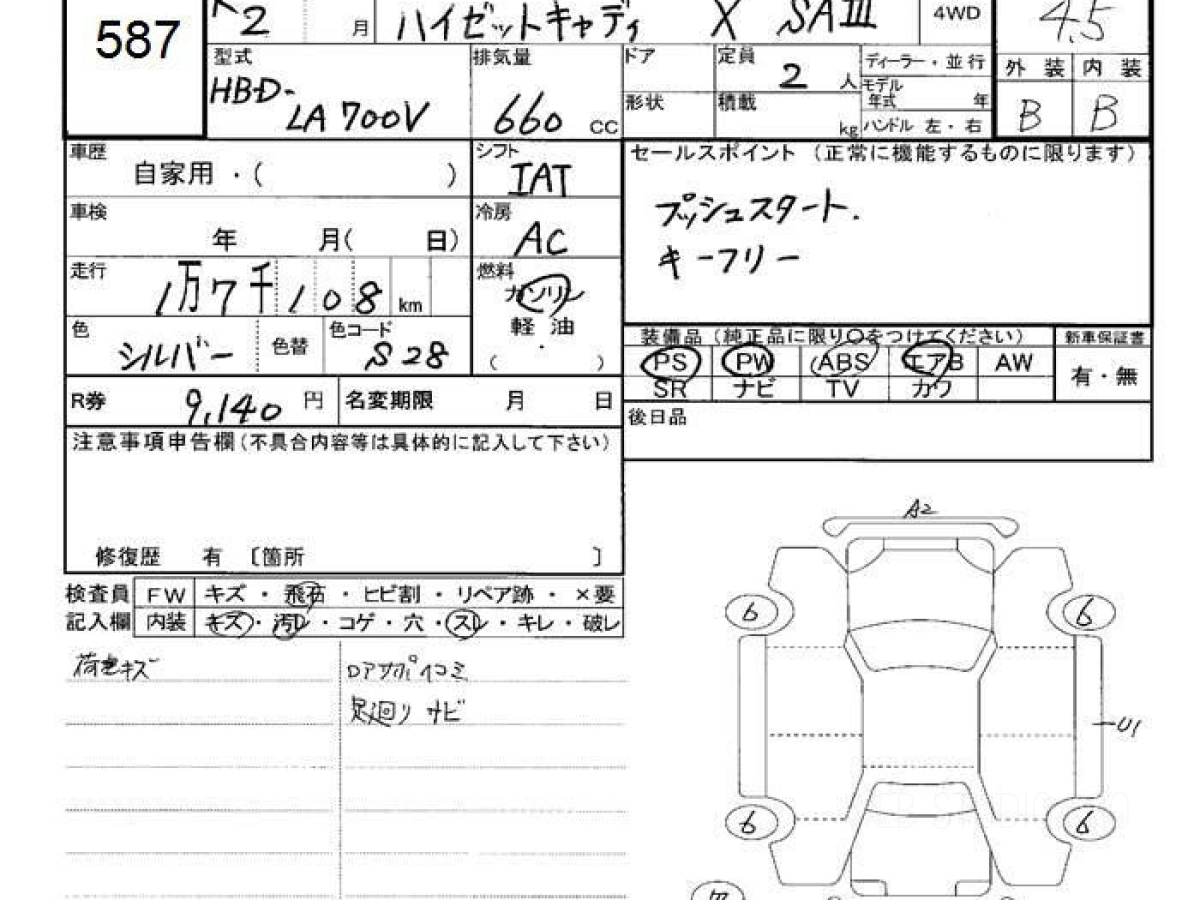 587
2 月 ハイゼットキャディ X SAIII 4WD 4.5
型式 HBD-LA700V
排気量 660 CC
ドア
定員 2 人
ディーラー・並行
モデル年式 年
形状
積載 kg
ハンドル 左・右
外装 内装
B B
車歴 自家用・( )
シフト IAT
車検 年 月( 日)
冷房 AC
走行 1万7千108 km
燃料 ガソリン
軽油
・
( )
色 シルバー 色替 色コード S28
セールスポイント (正常に機能するものに限ります)
プッシュスタート.
キーフリー
装備品 (純正品に限り○をつけてください) 新車保証書
PS PW ABS エアB AW 有・無
SR ナビ TV カワ
R券 9,140 円 名変期限 月 日
後日品
注意事項申告欄(不具合内容等は具体的に記入して下さい)
修復歴 有 〔箇所 〕
検査員 FW キズ・飛石・ヒビ割・リペア跡・×要
記入欄 内装 キズ・汚レ・コゲ・穴・スレ・キレ・破レ
キズ
足廻り サビ
A2
6 6
U1
6 6